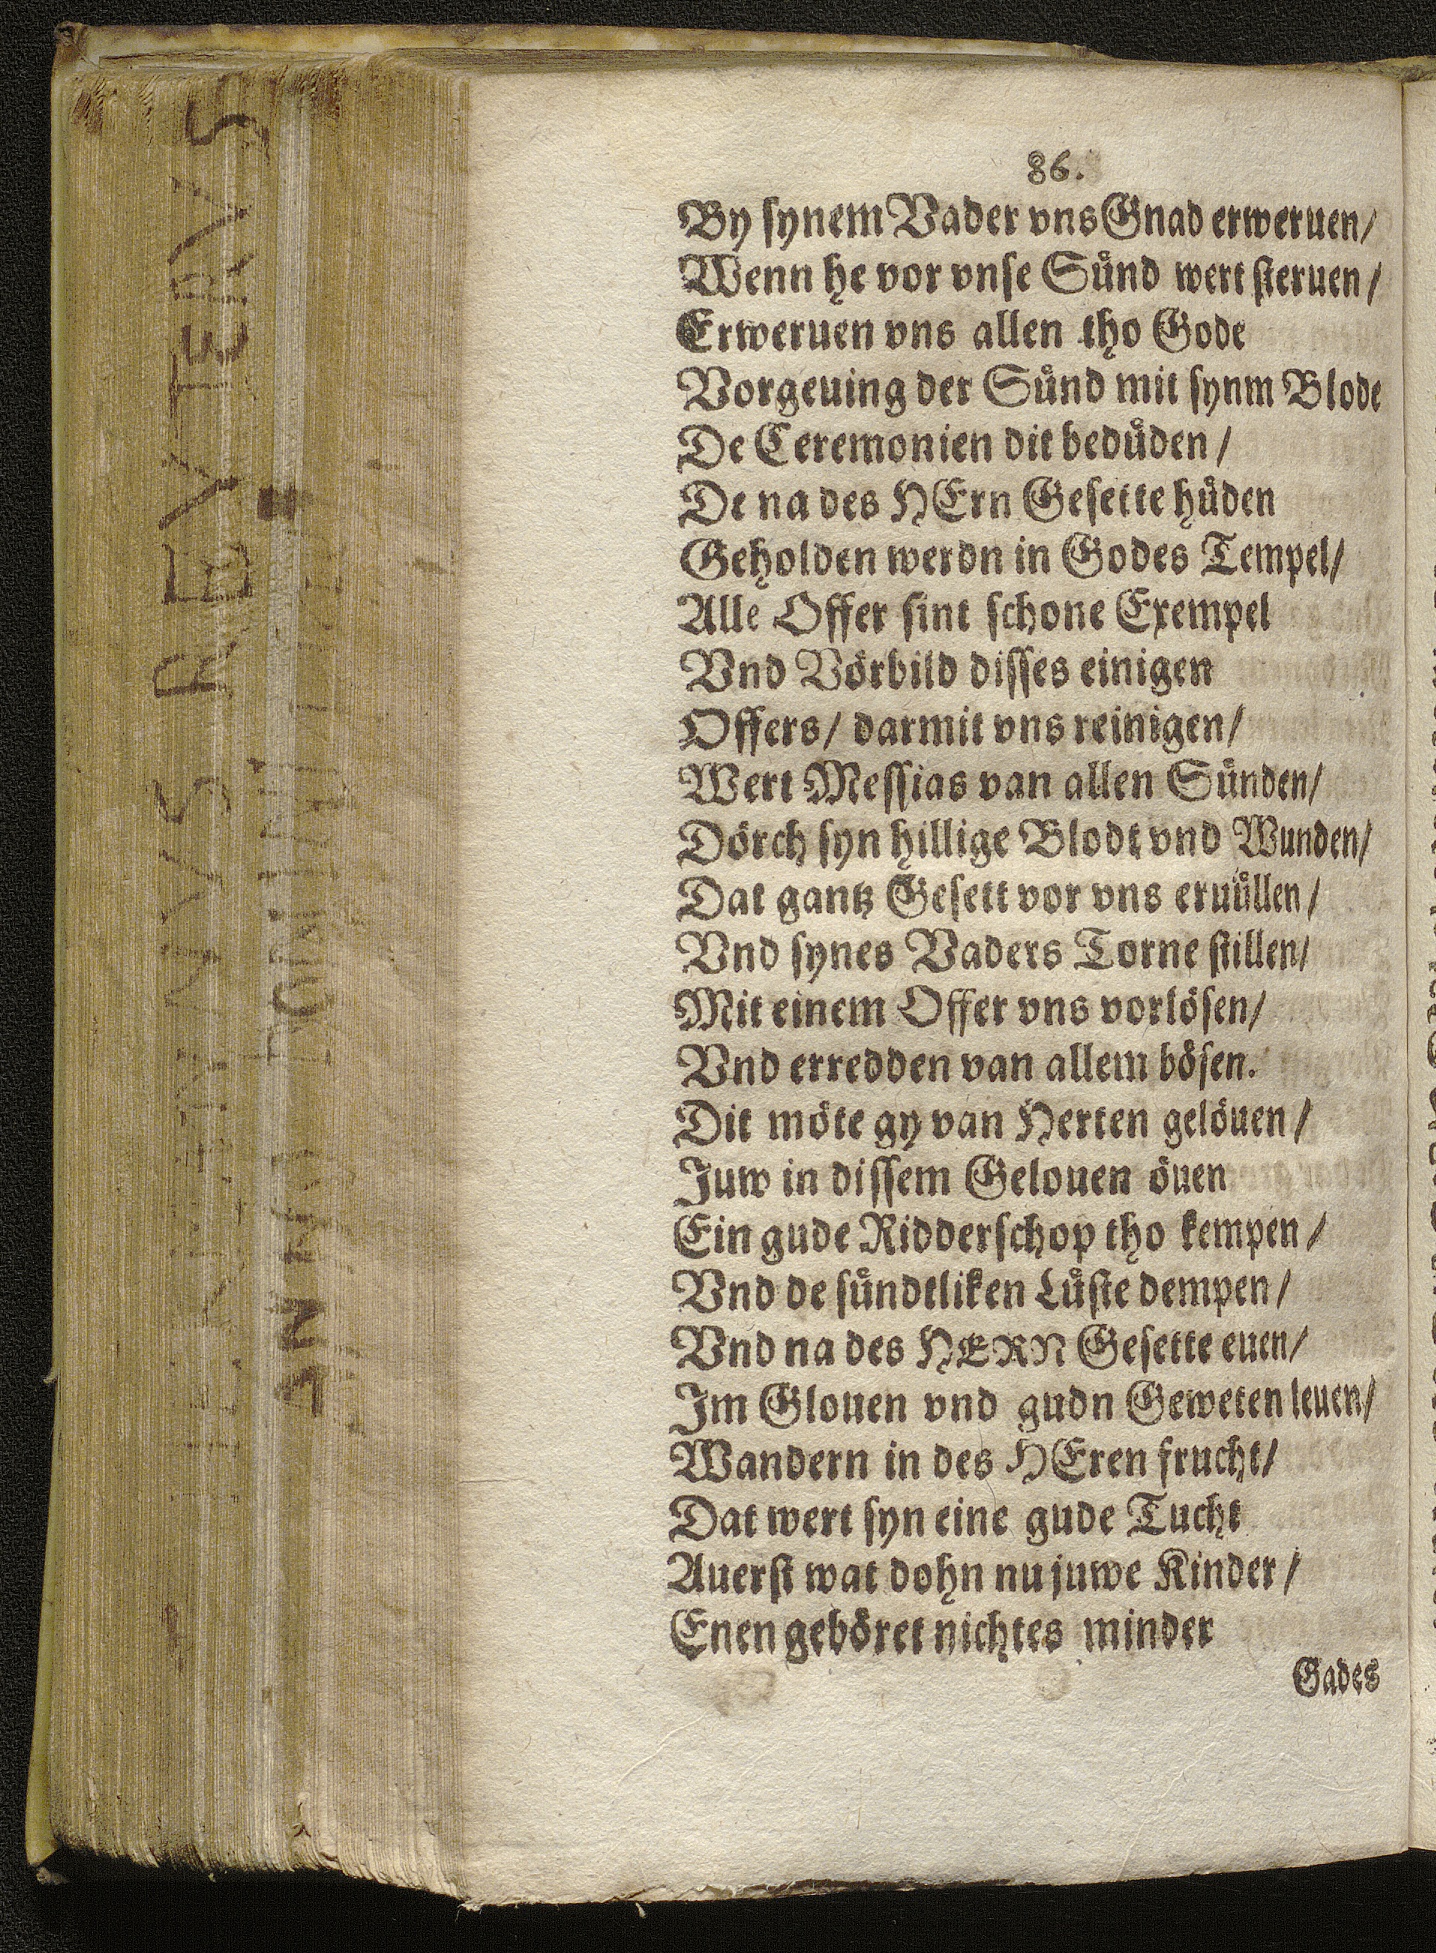 86.
By synem Vader vns Gnad erweruen/
Wenn he vor vnse Sůnd wert steruen/
Erweruen vns allen tho Gode
Vorgeuing der Sůnd mit synm Blode
De Ceremonien dit bedůden/
De na des HErn Gesette hůden
Geholden werdn in Godes Tempel/
Alle Offer sint schone Exempel
Vnd Vörbild disses einigen
Offers/ darmit vns reinigen/
Wert Messias van allen Sůnden/
Dörch syn hillige Blodt vnd Wunden/
Dat gantz Gesett vor vns eruůllen/
Vnd synes Vaders Torne stillen/
Mit einem Offer vns vorlösen/
Vnd erredden van allem bösen.
Dit möte gy van Herten gelöuen/
Juw in dissem Gelouen öuen
Ein gude Ridderschop tho kempen/
Vnd de sůndtliken Lůste dempen/
Vnd na des HERN Gesette euen/
Im Glouen vnd gudn Geweten leuen/
Wandern in des HEren frucht/
Dat wert syn eine gude Tucht
Auerst wat dohn nu juwe Kinder/
Enen geböret nichtes minder
Gades
REVTERVS